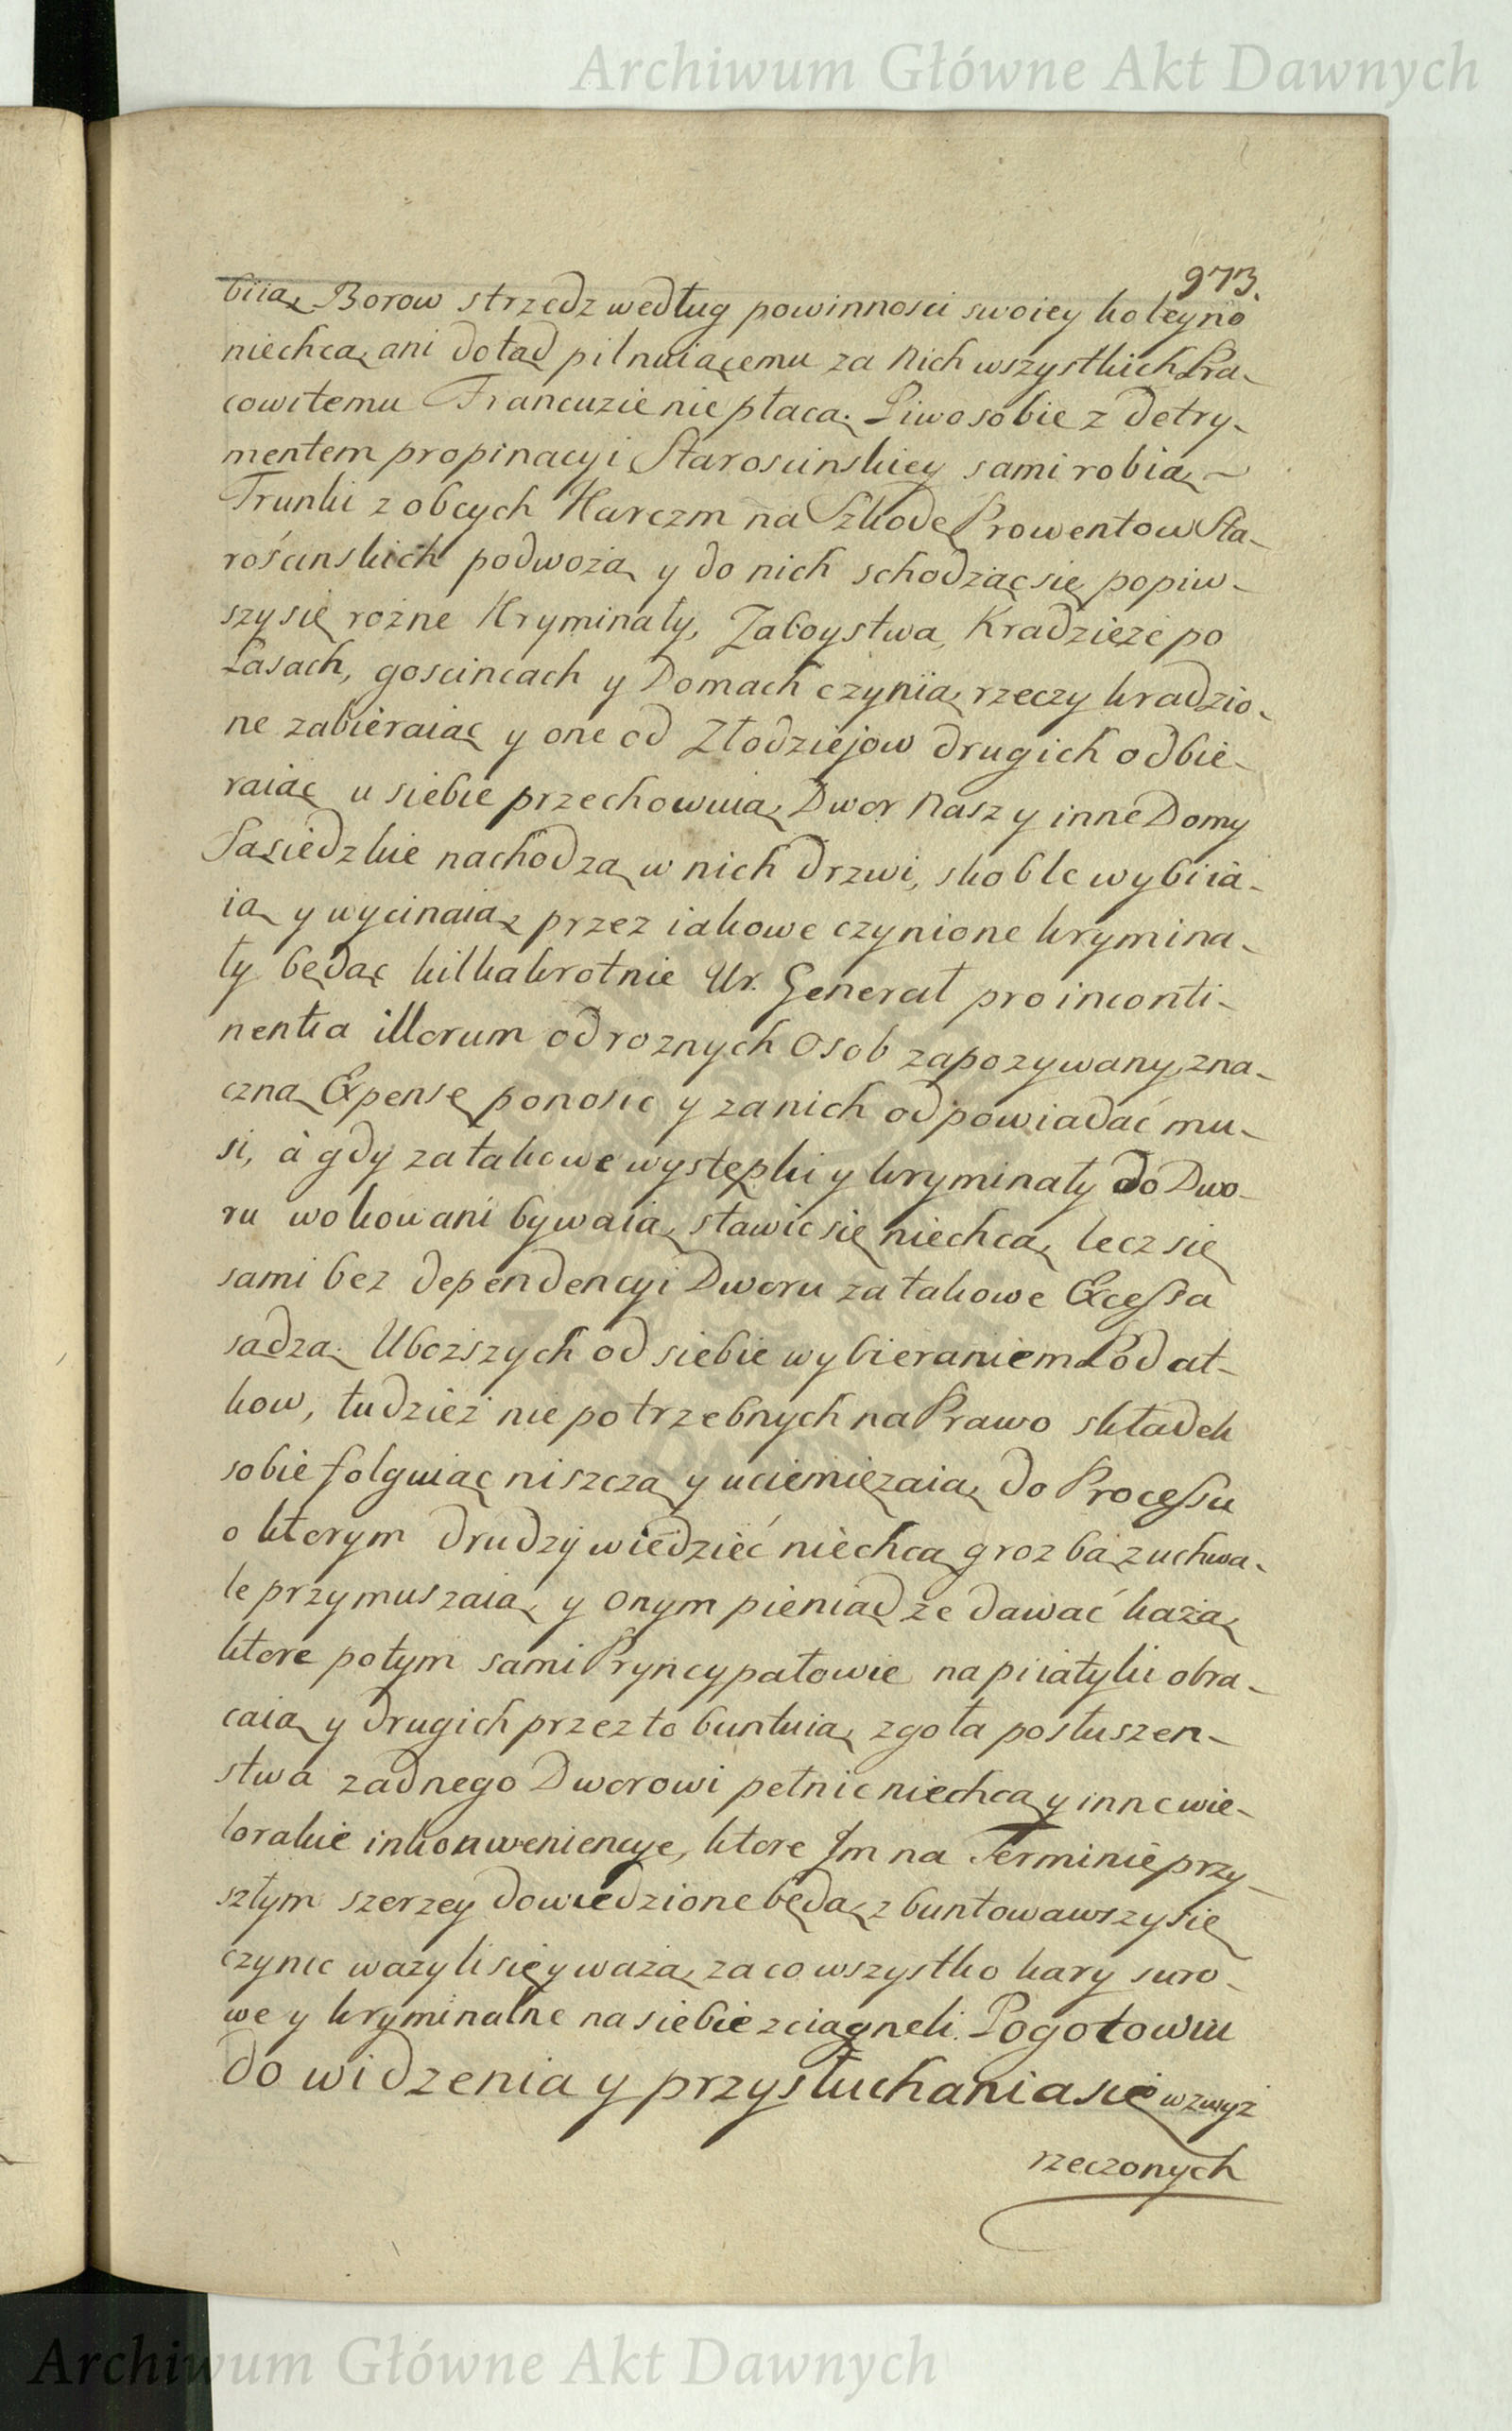 Archiwum Główne Akt Dawnych
973.
biią, Borow strzedz według powinnosci swoiey koleyno
niechcą, ani dotąd pilnuiącemu za nich wszystkich Pra-
cowitemu Francuzie nie płacą. Piwo sobie z detry-
mentem propinacyi Staroscinskiey sami robią,
Trunki z obcych Karczm na Szkodę Prowentow Sta-
rościnskich podwożą y do nich schodząc się popiw-
szy się rożne Kryminały, Zaboystwa, Kradzieże po
Lasach, goscincach y Domach czynią, rzeczy kradzio-
ne zabieraiąc y one od Złodziejow drugich odbie-
raiąc u siebie przechowuią, Dwor Nasz y inne Domy
Sąsiedzkie nachodzą w nich drzwi, skoble wybiia-
ią y wycinaią, przez iakowe czynione krymina-
ły będąc kilkakrotnie Ur. Generał pro inconti-
nentia illorum od roznych Osob zapozywany, zna-
czną Expensę ponosic y za nich odpowiadać mu-
si, à gdy za takowe występki y kryminały do Dwo-
ru wokowani bywaią, stawic się niechcą, lecz się
sami bez dependencyi Dworu za takowe Excessa
sądzą. Uboższych od siebie wybieraniem Podat-
kow, tudzież nie potrzebnych na Prawo składek
sobie folguiąc niszczą y uciemięzaią, do Processu
o ktorym drudzy wiedzieć niechcą grozbą zuchwa-
le przymuszaią, y onym pieniądze dawać każą,
ktore potym sami Pryncypałowie na piiatyki obra-
caią y drugich przez to buntuią, zgoła posłuszen-
stwa zadnego Dworowi pełnic niechcą y inne wie-
lorakie inkonweniencye, ktore Im na Terminie przy-
szłym szerzey dowiedzione będą, zbuntowawszy się
czynic wazyli się y ważą, za co wszystko kary suro-
we y kryminalne na siebie zciągneli. Pogotowiu
do widzenia y przysłuchania się wzwyż
rzeczonych
Archiwum Główne Akt Dawnych